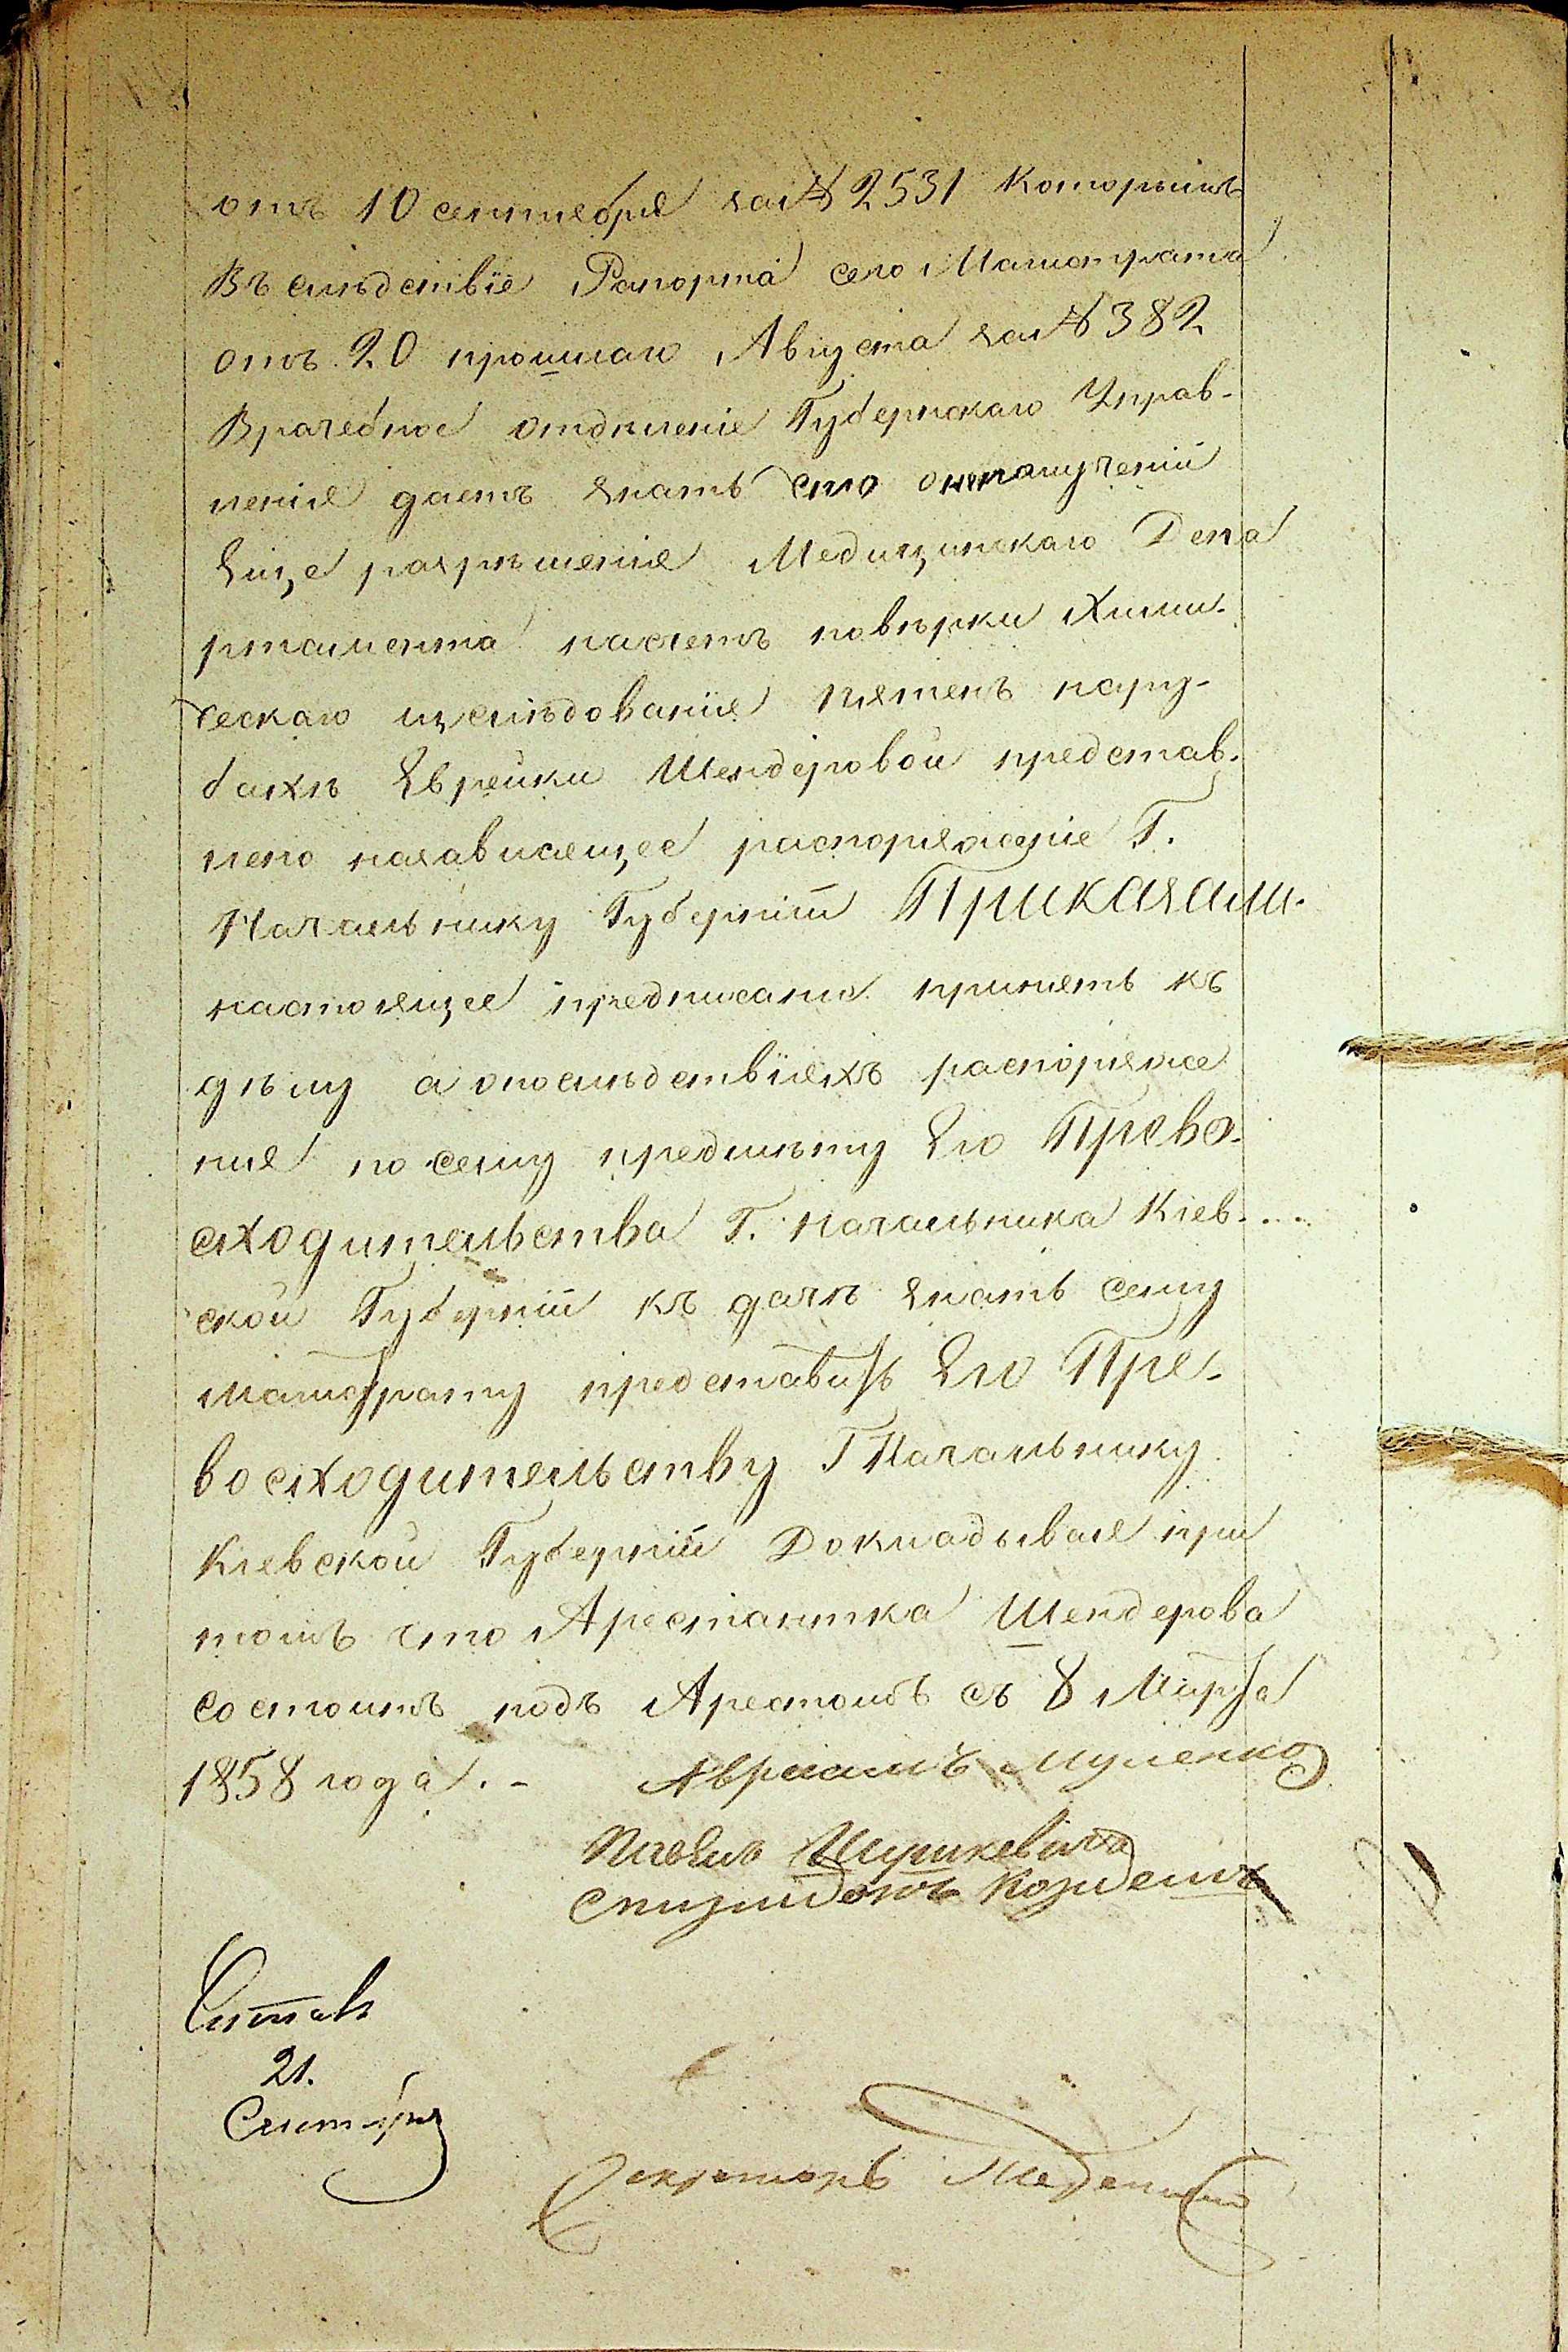 отъ 10 сентября за № 2531 Которымъ
Въ слѣдствіе Рапорта сего Магистрата
отъ 20 прошлаго Августа за № 382
Врачебное отдѣленіе Губернскаго Управ-
ленія даетъ знать что онеполученіи
Еще разрѣшенія Медицинскаго Депа
ртамента насчетъ повѣрки Хими-
ческаго изслѣдованія пятенъ нару-
бахѣ Еврейки Шендеровой представ-
лено назависящее распоряженіе Г.
Начальнику Губерніи Приказали-
настоящее предписаніе принять къ
дѣлу а опослѣдствіяхъ распоряже
нія по сему предмѣту Его Прево-
сходительства Г. Начальника Кіев-
ской Губерніи къ дачѣ знать сему
магистрату представить Его Пре-
восходительству Г Начальнику
Кіевской Губерніи Докладывая при
томъ что Арестантка Шендерова
состоитъ подъ Арестомъ съ 8 Марта
1858 года. -
Секретарь
21.